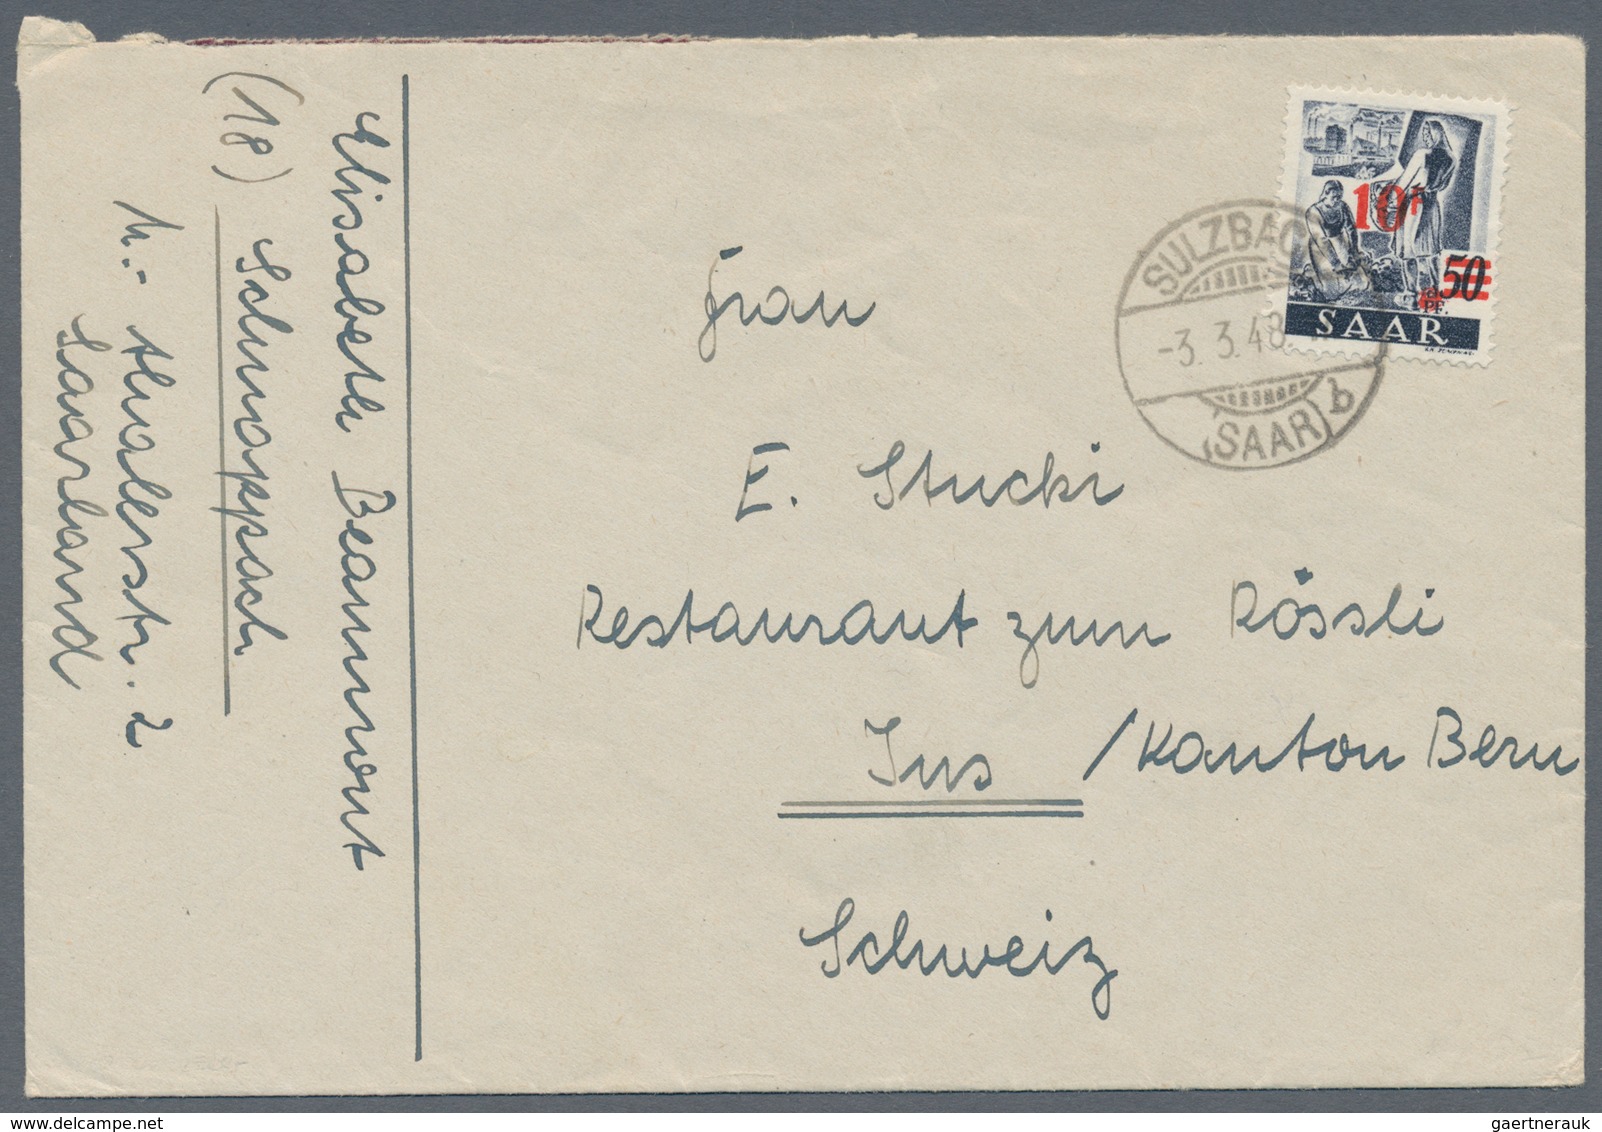 Elisabeth Beaumont
(18) Schnappach
Saarland
Frau
E. Stucki
Restaurant zum Rössli
Ins / Kanton Bern
Schweiz
10F
50
PF.
SAAR
SULZBACH
-3. 3.48.
(SAAR) b
gaertnerauk / delcampe.net